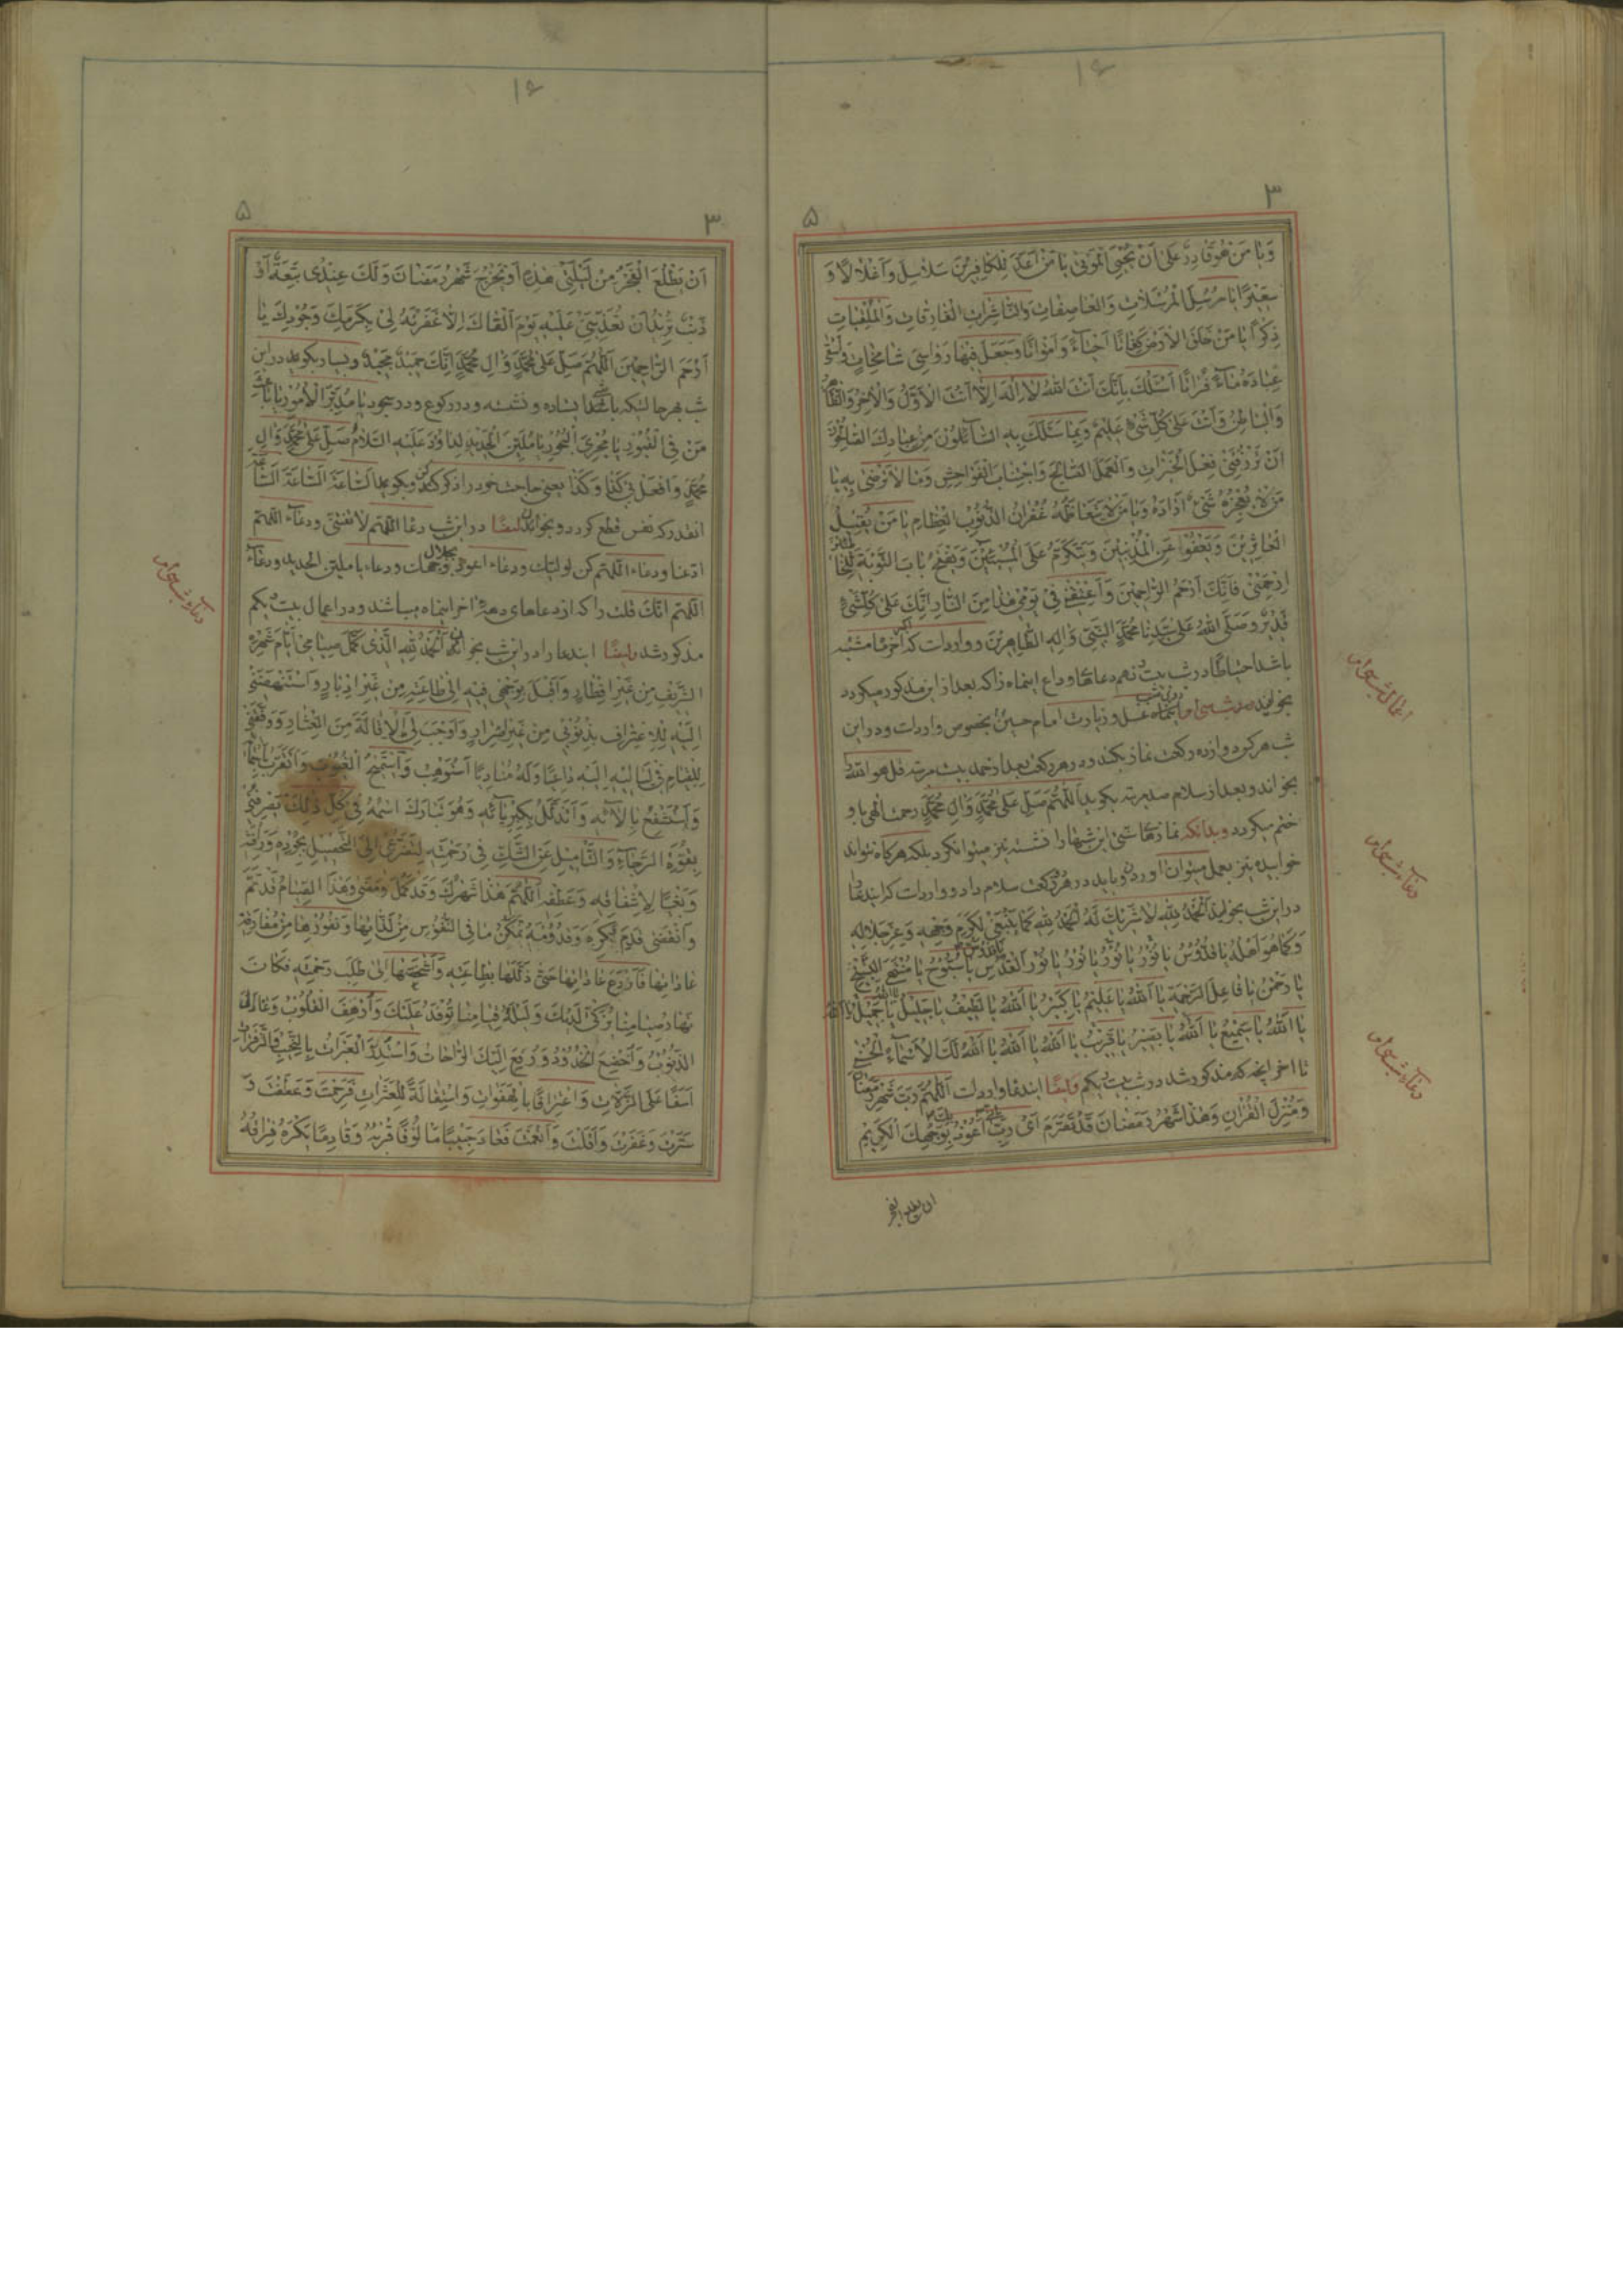 ۱۶
۳
۵
وَيٰا مَنْ هُوَ قٰادِرٌ عَلىٰ اَنْ يُحْيِيَ الْمَوْتىٰ يٰا مَنْ اَعَدَّ لِلْكٰافِرينَ سَلاٰسِلَ وَاَغْلاٰلاً وَ
سَعيراً يٰا مُرْسِلَ الْمُرْسَلاٰتِ وَالْعٰاصِفٰاتِ وَالنّٰاشِرٰاتِ الْفٰارِقٰاتِ وَالْمُلْقِيٰاتِ
ذِكْراً يٰا مَنْ خَلَقَ الْاَرْضَ كِفٰاتاً اَحْيٰاءً وَاَمْوٰاتاً وَجَعَلَ فيهٰا رَوٰاسِيَ شٰامِخٰاتٍ وَاَسْقىٰ
عِبٰادَهُ مٰاءً فُرٰاتاً اَسْئَلُكَ بِاَنَّكَ اَنْتَ اللهُ لاٰ اِلٰهَ اِلاّٰ اَنْتَ الْاَوَّلُ وَالْاٰخِرُ وَالظّٰاهِرُ
وَالْبٰاطِنُ وَاَنْتَ عَلىٰ كُلِّ شَيْءٍ عَليمٌ وَبِمٰا سَئَلَكَ بِهِ السّٰائِلُونَ مِنْ عِبٰادِكَ الصّٰالِحُونَ
اَنْ تَرْزُقَني فِعْلَ الْخَيْرٰاتِ وَالْعَمَلَ الصّٰالِحَ وَاجْتِنٰابَ الْفَوٰاحِشِ وَمٰا لاٰ تَرْضىٰ بِهِ يٰا
مَنْ لاٰ يُعْجِزُهُ شَيْءٌ اَرٰادَهُ وَيٰا مَنْ لاٰ يَتَعٰاظَمُهُ غُفْرٰانُ الذُّنُوبِ الْعِظٰامِ يٰا مَنْ يُقيلُ
الْعٰاثِرينَ وَيَعْفُوا عَنِ الْمُذْنِبينَ وَيَتَكَرَّمُ عَلَى الْمُسيئينَ وَيَفْتَحُ بٰابَ التَّوْبَةِ لِلْخٰاطِئينَ
اِرْحَمْني فَاِنَّكَ اَرْحَمُ الرّٰاحِمينَ وَاَعْتِقْني في يَوْمي هٰذٰا مِنَ النّٰارِ اِنَّكَ عَلىٰ كُلِّ شَيْءٍ
قَديرٌ وَصَلَّى اللهُ عَلىٰ سَيِّدِنٰا مُحَمَّدٍ النَّبِيِّ وَاٰلِهِ الطّٰاهِرينَ و وارد است که اگر اخر ماه مشتبه
باشد احتیاطا در شب بیست نهم دعاهای وداع اینماه را که بعد از این مذکور میگردد
بخوانید در شب سی ام اینماه غسل و زیارت امام حسین بخصوص وارد است و در این
شب هر که دوازده رکعت نماز بکند و در هر رکعت بعد از حمد بیست مرتبه قل هو الله
بخواند و بعد از سلام صد مرتبه بکوید اَللّٰهُمَّ صَلِّ عَلىٰ مُحَمَّدٍ وَاٰلِ مُحَمَّدٍ رحمت الهی باو
ختم میگردد وبدانکه نمازهای سنتی این شبها را نشسته نیز میتوان کرد بلکه هرکاه نتواند
خوابیده نیز بعمل میتوان اورد و باید در هر دو رکعت سلام داد و وارد است که ایندعا
در این شب بخوانید اَلْحَمْدُ لِلّٰهِ لاٰ شَريكَ لَهُ اَلْحَمْدُ لِلّٰهِ كَمٰا يَنْبَغي لِكَرَمِ وَجْهِهِ وَعِزِّ جَلاٰلِهِ
وَكَمٰا هُوَ اَهْلُهُ يٰا قُدُّوسُ يٰا نُورُ يٰا نُورُ يٰا نُورُ يٰا نُورَ الْقُدْسِ يٰا سُبُّوحُ يٰا مُنْتَهَى التَّسْبيحِ
يٰا رَحْمٰنُ يٰا فٰاعِلَ الرَّحْمَةِ يٰا اَللهُ يٰا عَليمُ يٰا كَبيرُ يٰا اَللهُ يٰا لَطيفُ يٰا جَليلُ يٰا جَميلُ يٰا اَللهُ
يٰا اَللهُ يٰا سَميعُ يٰا اَللهُ يٰا بَصيرُ يٰا قَريبُ يٰا اَللهُ يٰا اَللهُ يٰا اَللهُ لَكَ الْاَسْمٰاءُ الْحُسْنىٰ
تا اخر انچه که مذکور شد در شب بیست یکم وایضا ایندعا وارد است اَللّٰهُمَّ رَبَّ شَهْرِ رَمَضٰانَ
وَمُنْزِلَ الْقُرْاٰنِ وَهٰذٰا شَهْرُ رَمَضٰانَ قَدْ تَصَرَّمَ اَيْ رَبِّ اَعُوذُ بِوَجْهِكَ الْكَريمِ
ان یطلع الفجر
اعمال شب سی ام
دعاء شب سی ام
دعاء شب سی ام
۱۶
۳
۵
اَنْ يَطْلُعَ الْفَجْرُ مِنْ لَيْلَتي هٰذِهِ اَوْ يَخْرُجَ شَهْرُ رَمَضٰانَ وَلَكَ عِنْدي تَبِعَةٌ اَوْ
ذَنْبٌ تُريدُ اَنْ تُعَذِّبَني عَلَيْهِ يَوْمَ اَلْقٰاكَ اِلاّٰ غَفَرْتَهُ لي بِكَرَمِكَ وَجُودِكَ يٰا
اَرْحَمَ الرّٰاحِمينَ اَللّٰهُمَّ صَلِّ عَلىٰ مُحَمَّدٍ وَاٰلِ مُحَمَّدٍ اِنَّكَ حَميدٌ مَجيدٌ وبسیار بکوید در این
شب بهر حالتیکه باشد ایستاده و نشسته و در رکوع و در سجود يٰا مُدَبِّرَ الْاُمُورِ يٰا بٰاعِثَ
مَنْ فِي الْقُبُورِ يٰا مُجْرِيَ الْبُحُورِ يٰا مُلَيِّنَ الْحَديدِ لِدٰاوُدَ عَلَيْهِ السَّلاٰمُ صَلِّ عَلىٰ مُحَمَّدٍ وَاٰلِ
مُحَمَّدٍ وَافْعَلْ بي كَذٰا وَكَذٰا یعنی حاجت خود را ذکر کند و بکوید اَلسّٰاعَةَ اَلسّٰاعَةَ اَلسّٰاعَةَ
انقدر که نفس قطع کردد و بخواند ایضا در این شب دعا اللهم لا تفتنی ودعاء اللهم
ادعنا ودعاء اللهم کن لولیک ودعاء اعوذ بجلال وجهک ودعاء یا ملین الحدید ودعاء
اللهم انک قلت را که از دعاهای دهه اخر اینماه میباشند و در اعمال بیست یکم
مذکور شد وایضا ایندعا را در این شب بخوانید اَلْحَمْدُ لِلّٰهِ الَّذي كَمَّلَ صِيٰامي اَيّٰامَ شَهْرِهِ
الشَّريفِ مِنْ غَيْرِ اِفْطٰارٍ وَاَقْبَلَ بِوَجْهي فيهِ اِلىٰ طٰاعَتِهِ مِنْ غَيْرِ اِدْبٰارٍ وَاسْتَنْهَضَني
اِلَيْهِ لِلْاِعْتِرٰافِ بِذُنُوبي مِنْ غَيْرِ اِصْرٰارٍ وَاَوْجَبَ لِيَ الْاِقٰالَةَ مِنَ الْعِثٰارِ وَوَفَّقَني
لِلْقِيٰامِ في لَيٰاليهِ اِلَيْهِ دٰاعِياً وَلَهُ مُنٰادِياً اَسْتَوْهِبُ وَاَسْتَميحُ الْعُيُوبَ وَاَتَقَرَّبُ بِاَسْمٰائِهِ
وَاَسْتَشْفِعُ بِاٰلاٰئِهِ وَاَتَذَلَّلُ بِكِبْرِيٰائِهِ وَهُوَ تَبٰارَكَ اسْمُهُ في كُلِّ ذٰلِكَ يَصْرِفُني
بِقُوَّةِ الرَّجٰاءِ وَالتَّأْميلِ عَنِ الشَّكِّ في رَحْمَتِهِ لِتَضَرُّعي اِلَى التَّحْصيلِ بِجُودِهِ وَرَأْفَتِهِ
وَتَبَغِّياً لِاِشْفٰاقِهِ وَعَطْفِهِ اَللّٰهُمَّ هٰذٰا شَهْرُكَ وَقَدْ كَمُلَ وَمَضىٰ وَهٰذَا الصِّيٰامُ قَدْ تَمَّ
وَانْقَضىٰ قَدِمَ بِكُرْهٍ وَقُدُومُهُ تَمَكُّنُ مٰا فِي النُّفُوسِ مِنْ لَذّٰاتِهٰا وَنُفُورِهٰا مِنْ مُفٰارَقَةِ
عٰادٰاتِهٰا فَمٰا وَدَعَ عٰادٰاتِهٰا حَتّىٰ ذَلَّلَهٰا بِطٰاعَتِهِ وَاَشْخَصَهٰا اِلىٰ طَلَبِ رَحْمَتِهِ فَكٰانَ
نَهٰارُ صِيٰامِنٰا يُزَكّىٰ لَدَيْكَ وَلَيْلُهُ قِيٰامُنٰا تُوفَدُ عَلَيْكَ وَاَرْهَفَ الْقُلُوبَ وَعٰادَ
الذُّنُوبَ وَاَخْضَعَ الْخُدُودَ وَرَفَعَ اِلَيْكَ الرّٰاحٰاتِ وَاسْتَدَرَّ الْعَبَرٰاتِ بِالنَّحيبِ وَالزَّفَرٰاتِ
اَسَفاً عَلَى الزَّلاّٰتِ وَاعْتِرٰافاً بِالْهَفَوٰاتِ وَاسْتِقٰالَةً لِلْعَثَرٰاتِ فَرَحِمْتَ وَعَطَفْتَ وَ
سَتَرْتَ وَغَفَرْتَ وَاَقَلْتَ وَاَنْعَمْتَ فَعٰادَ حَبيباً مَأْلُوفاً قُرْبُهُ وَقٰادِماً يُكْرَهُ فِرٰاقُهُ
دعاء شب سی ام